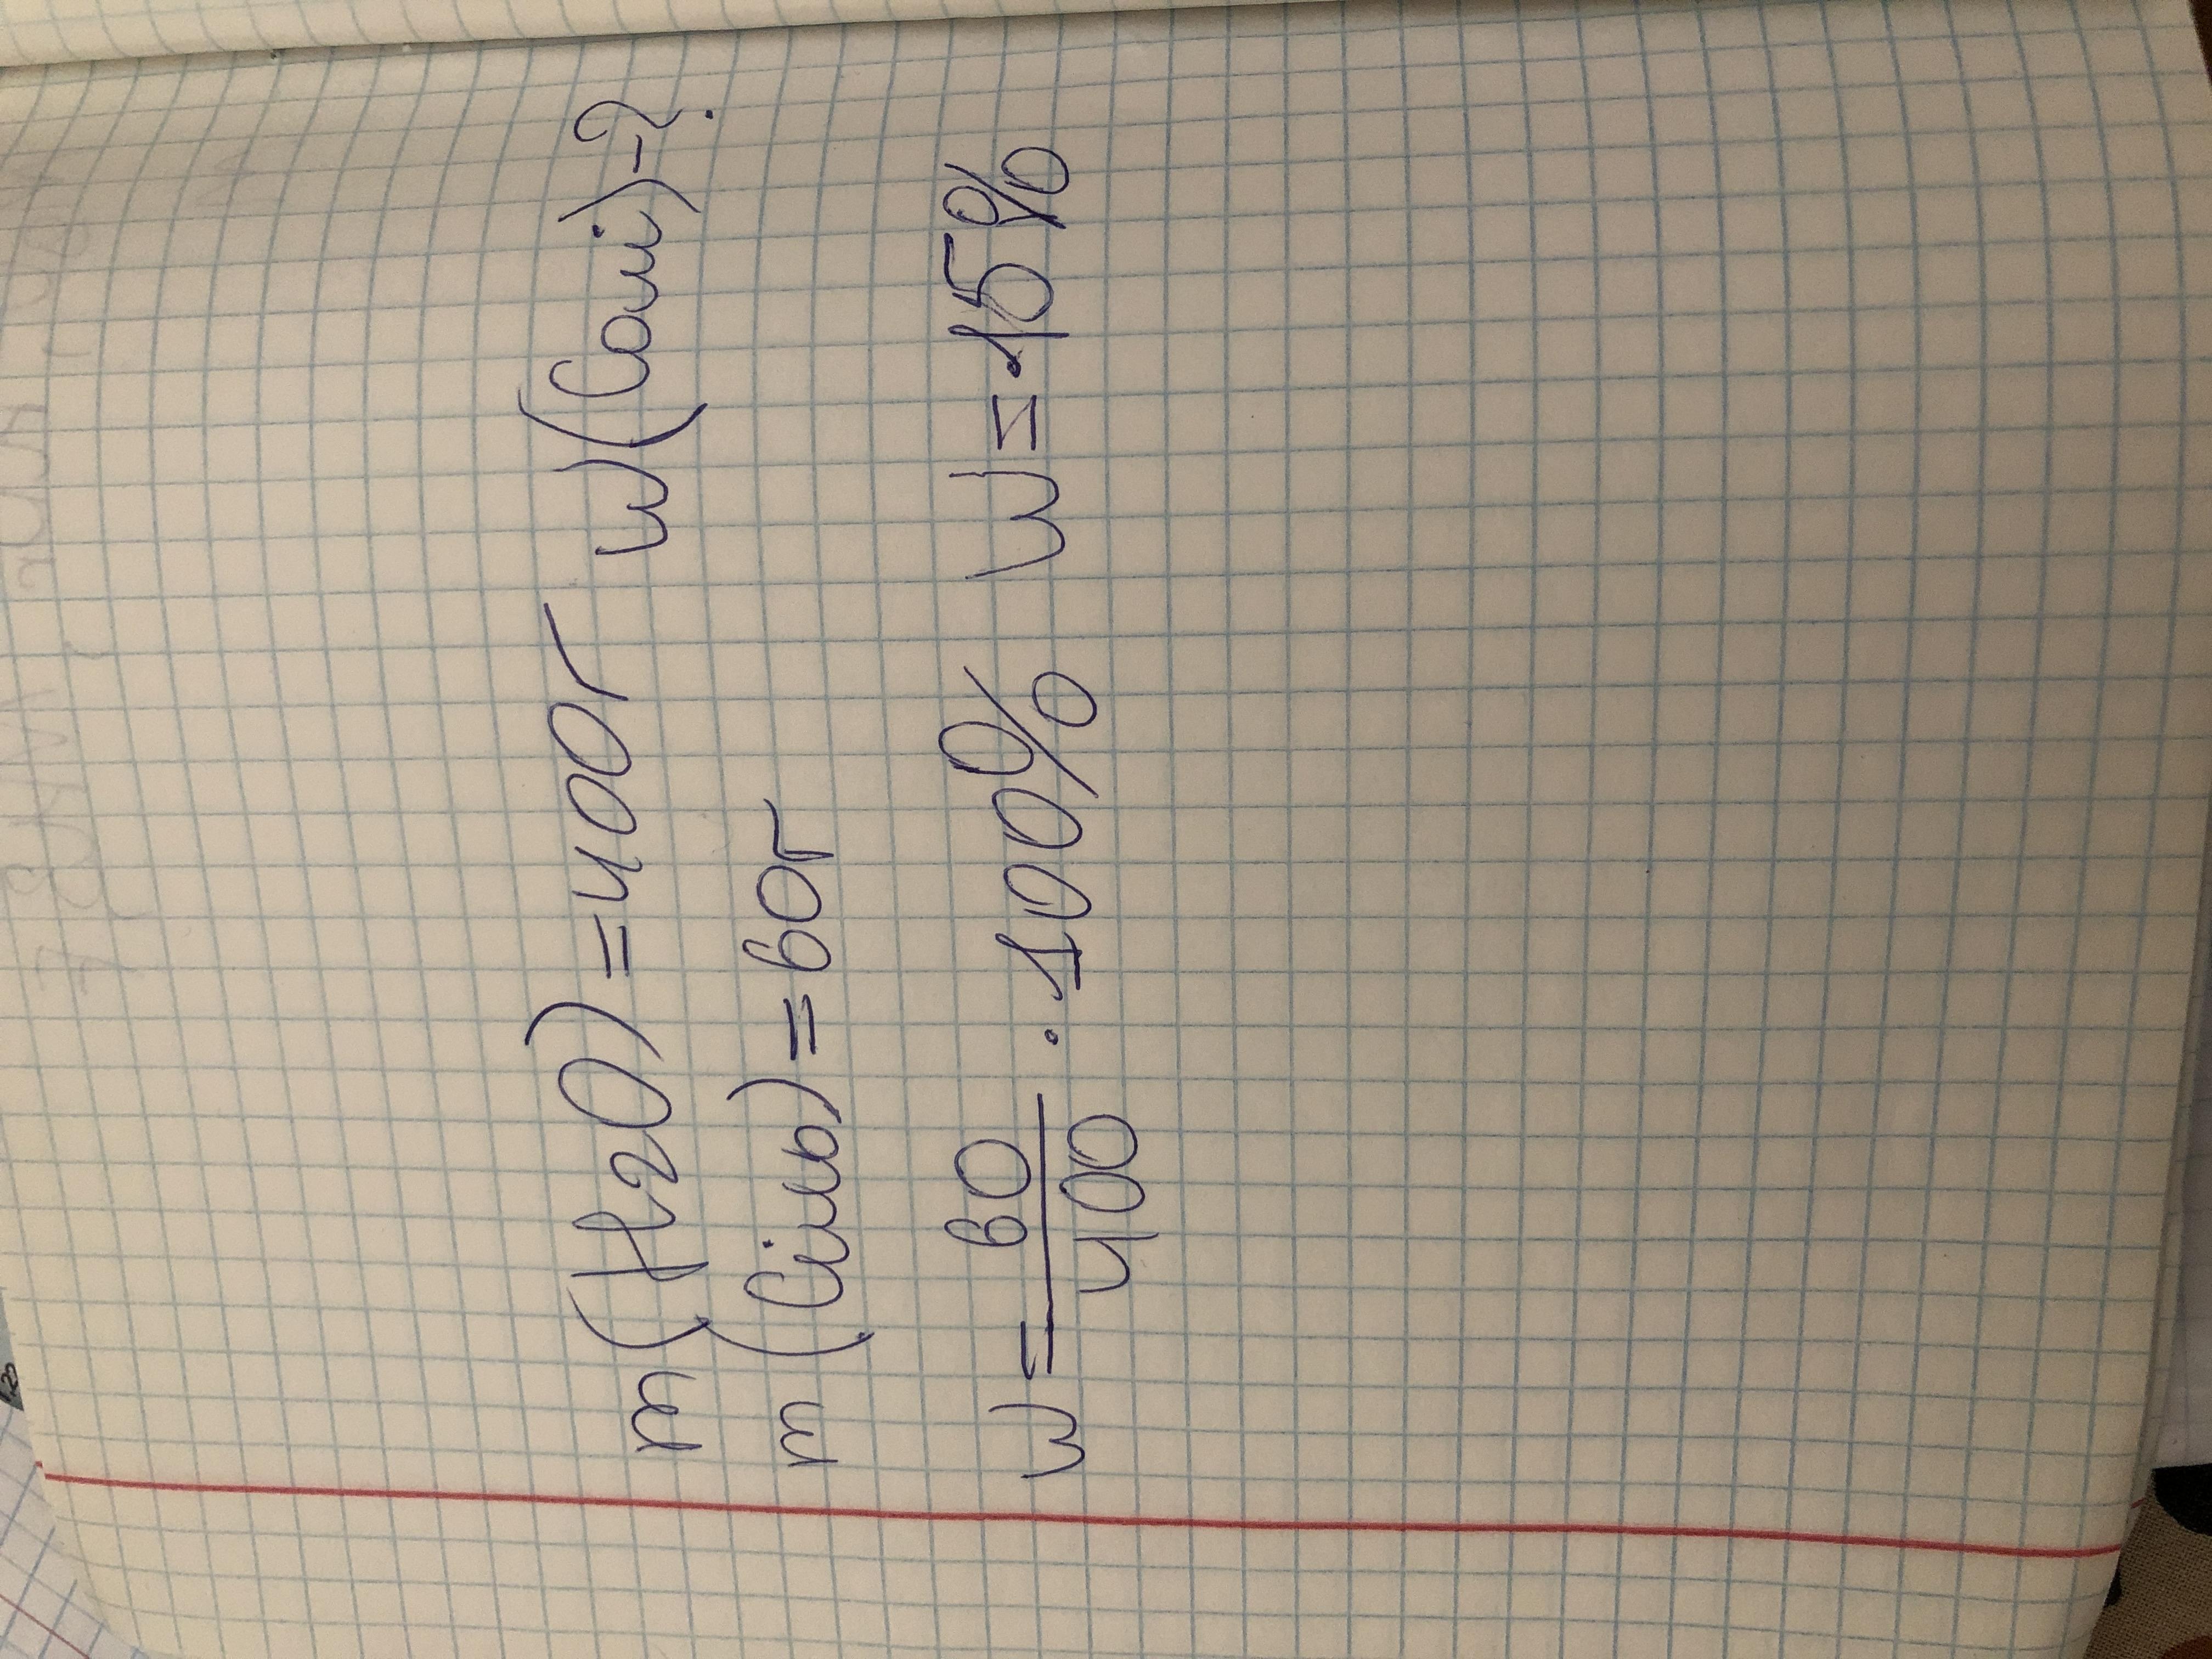 m(H2O)=400г w(Солі)-?
m(Сіль)=60г
w=60/400·100% w=15%